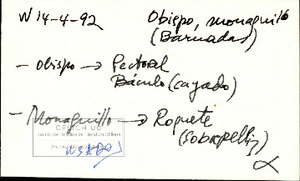 N 14-4-92
Obispo, monaguillo
(Barnadas)
- Obispo → Pectoral
Báculo (cayado)
- Monaguillo → Roquete
(sobrepelliz)
CEDOCH UC
USADO
α